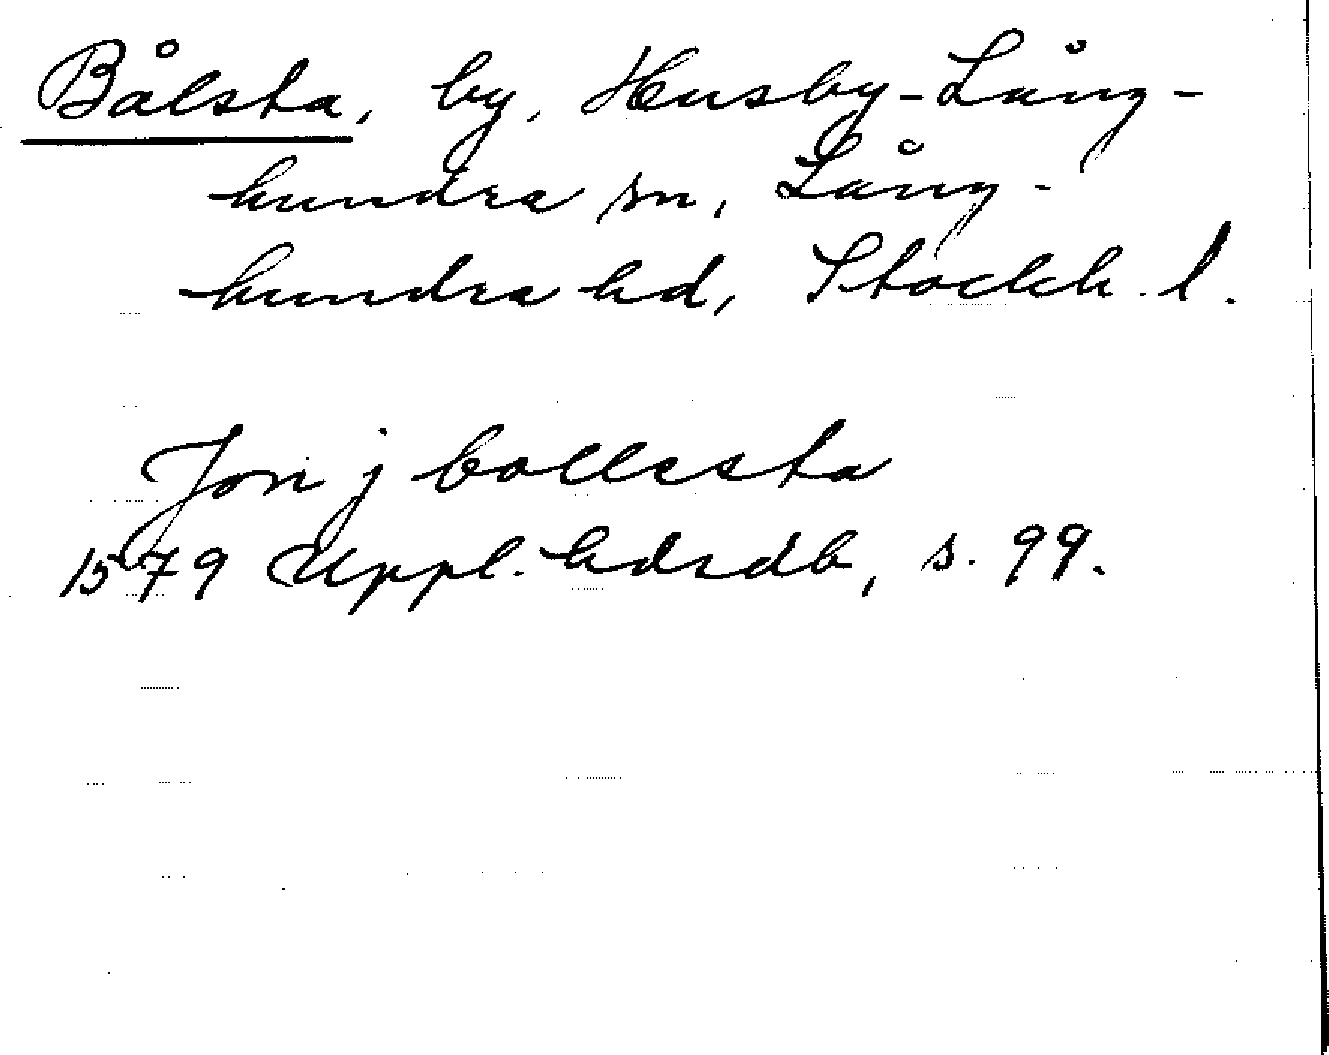 Bålsta, by, Husby-Lång-
hundra sn, Lång-
hundra hd, Stockh. l.
Jon j bollesta
1579 Uppl. hdrdb, s. 99.